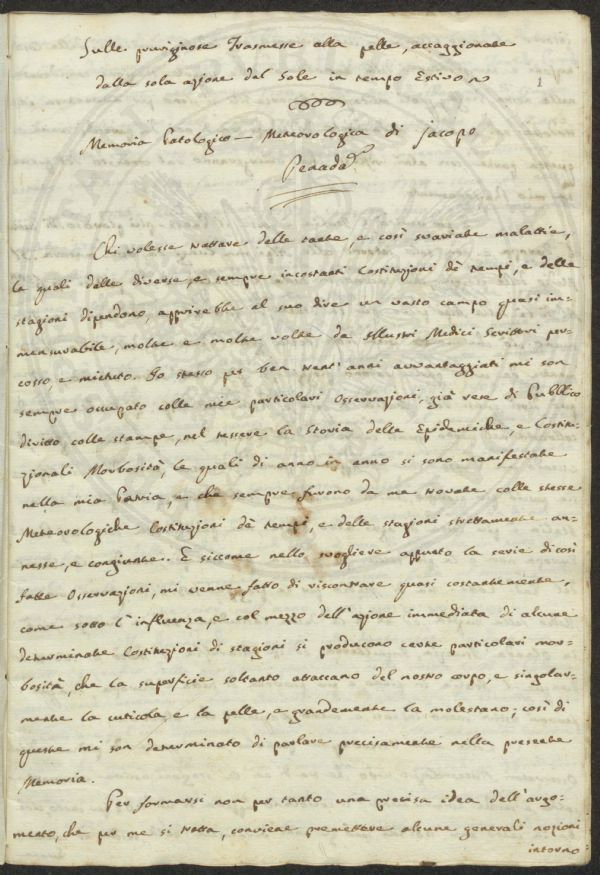 Sulle pruriginose Trasmesse alla pelle, accaggionate
dalla sola azione dal Sole in tempo Estivo
1
Memoria Patologico - Meteorologica di Jacopo
Penada
Chi volesse trattare delle tante, e così svariate malattie,
le quali delle diverse, e sempre incostanti Costituzioni dè tempi, e delle
stagioni dipendono, apprirebbe al suo dire un vasto campo quasi im-
mensurabile, molte e molte volte da Illustri Medici Scrittori per-
corso, e mietuto. Io stesso per ben trent' anni avvantaggiati mi son
sempre occupato colle mie particolari Osservazioni, già rese di Pubblico
diritto colle stampe, nel tessere la Storia delle Epidemiche, e Costitu-
zionali Morbosità, le quali di anno in anno si sono manifestate
nella mia Patria, e che sempre furono da me trovate colle stesse
Meteorologiche Costituzioni dè tempi, e delle stagioni strettamente an-
nesse, e congiunte. E siccome nello svogliere appunto la serie di così
fatte Osservazioni, mi venne fatto di riscontrare quasi costantemente,
come sotto l'influenza, e col mezzo dell'azione immediata di alcune
determinate Costituzioni di stagioni si producono certe particolari mor-
bosità, che la superficie soltanto attaccano del nostro corpo, e singolar-
mente la cuticola, e la pelle, e grandemente la molestano; così di
queste mi son determinato di parlare precisamente nella presente
Memoria.
Per formarsi non per tanto una precisa idea dell'argo-
mento, che per me si tratta, conviene premettere alcune generali nozioni
intorno